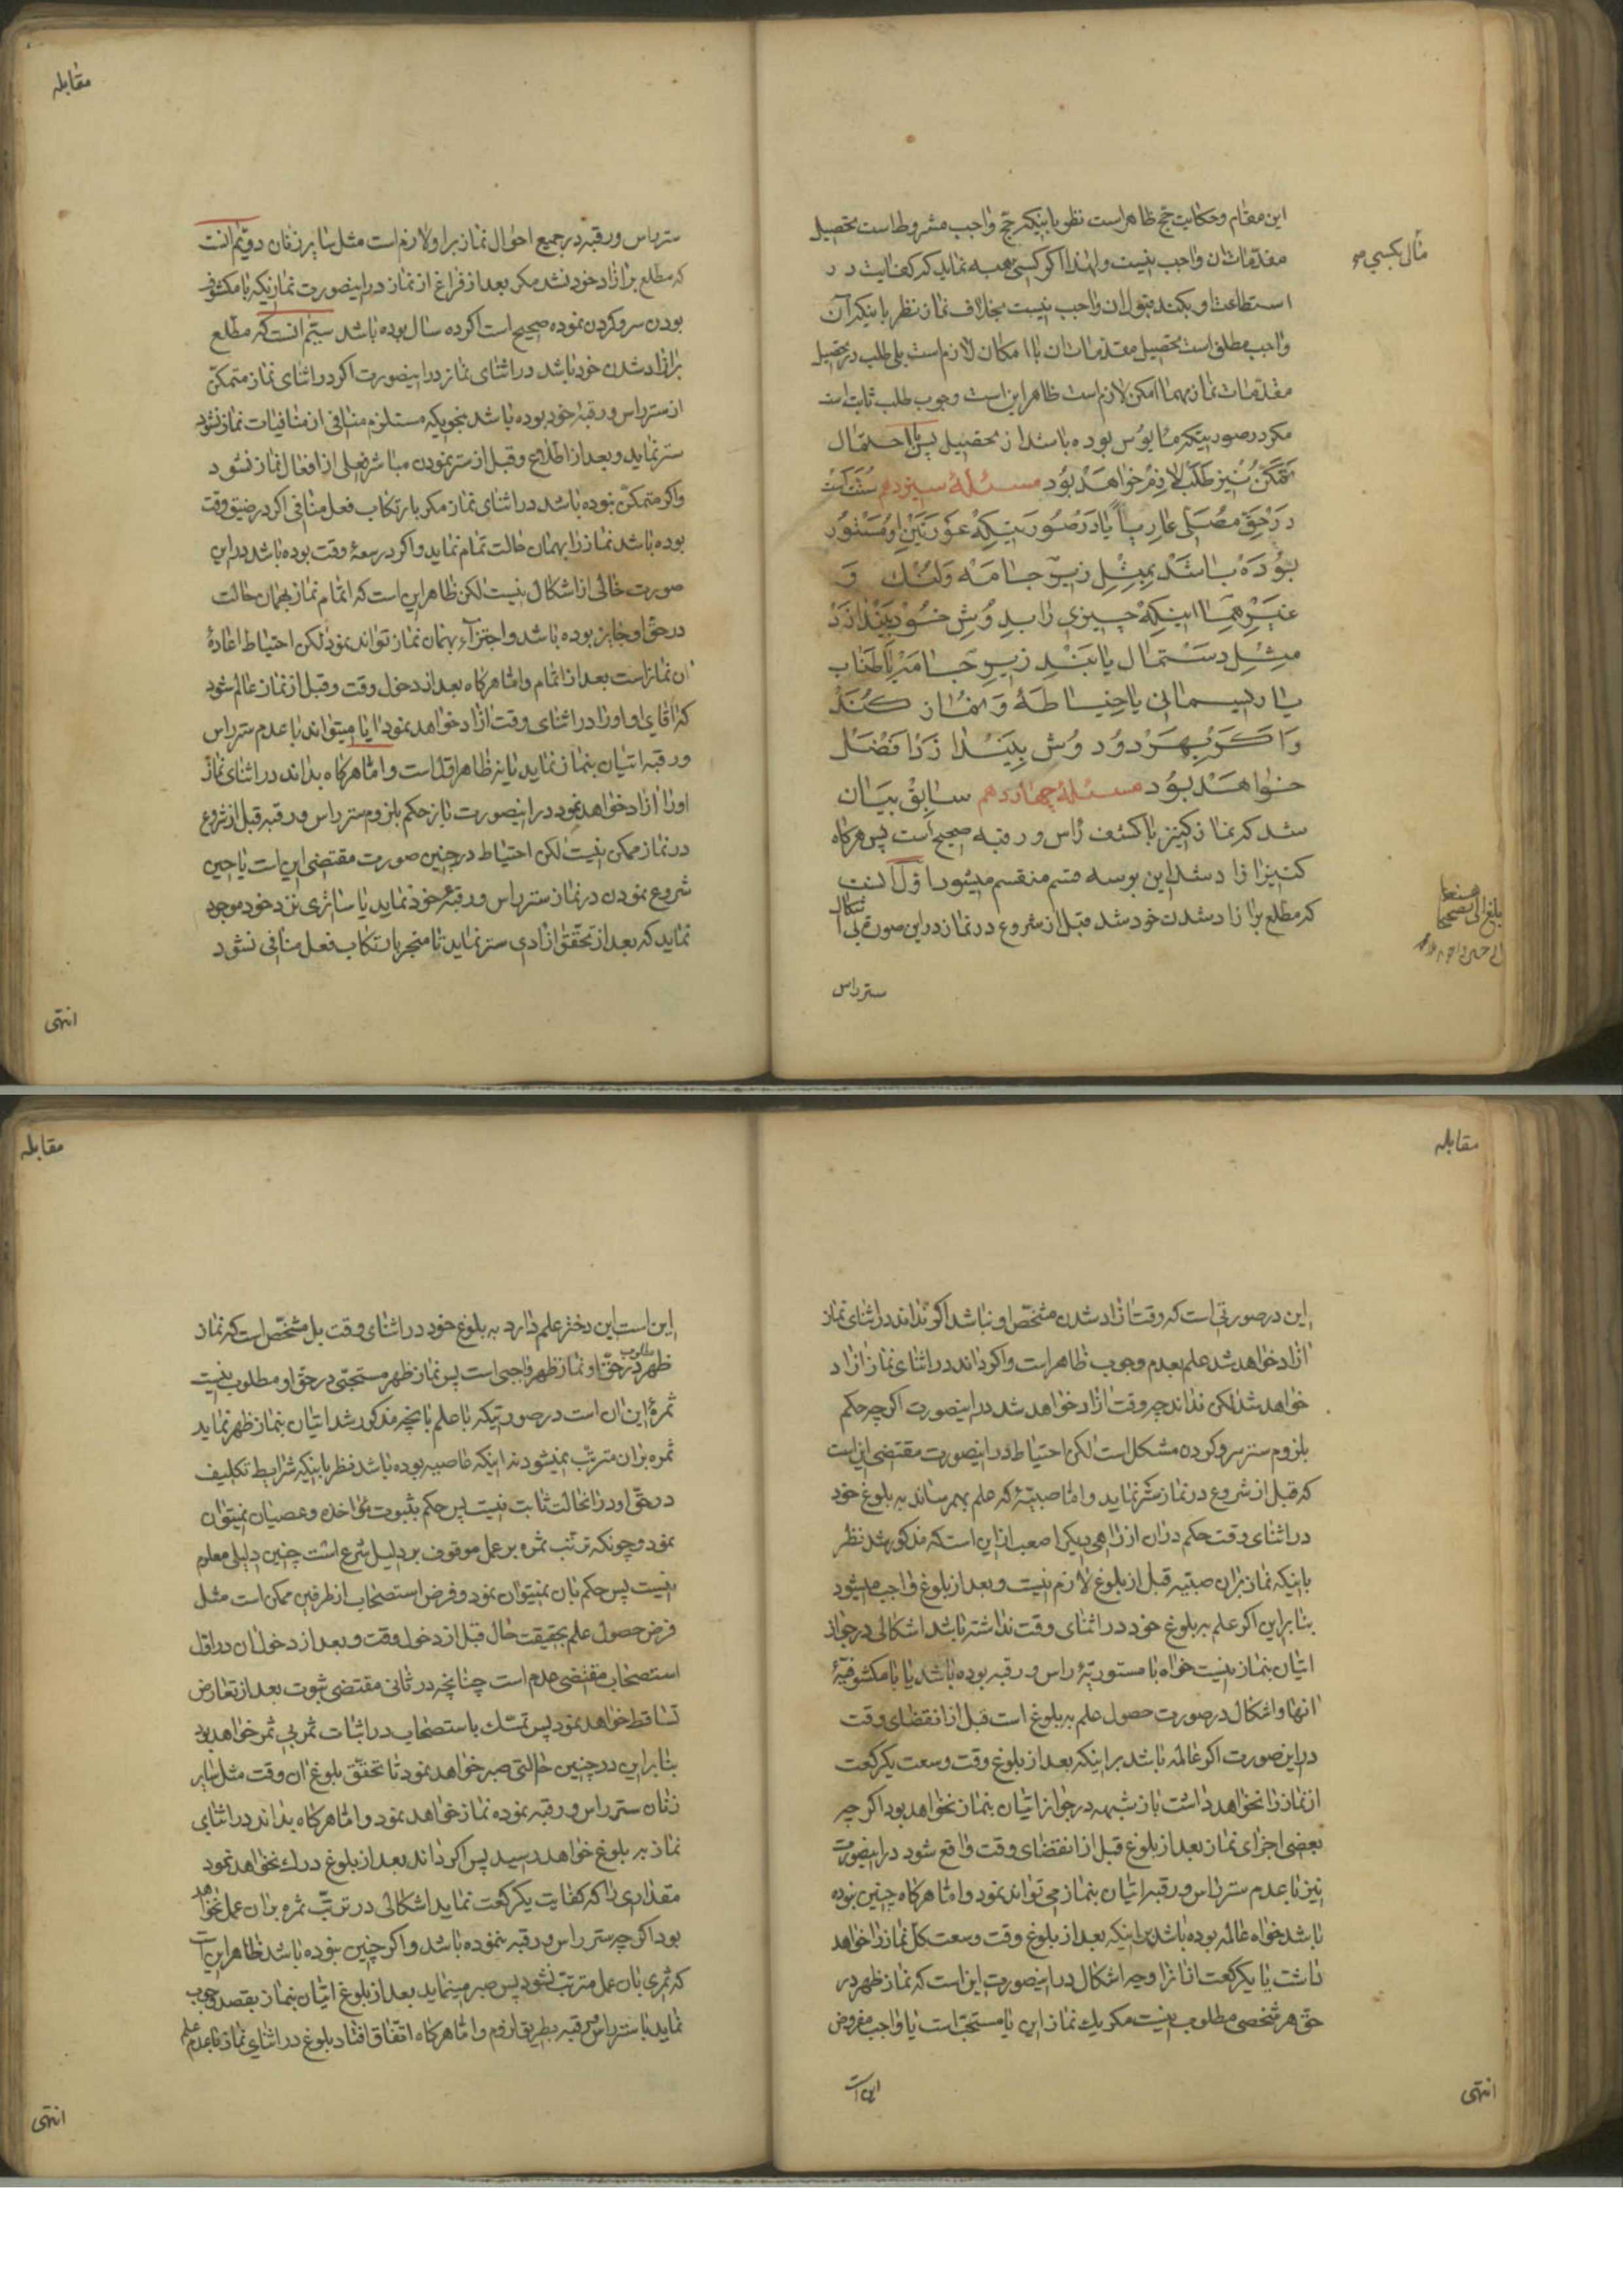 این مقام و حکایت حج ظاهر است نظر باینکه حج واجب مشروط است تحصیل
مقدّمات ان واجب نیست و لهذا اکر کسی هبه نماید که کفایت در
استطاعت او بکند قبول ان واجب نیست بخلاف نماز نظر باینکه آن
واجب مطلق است تحصیل مقدّمات ان با امکان لازم است بلی طلب در تحصیل
مقدّمات نماز مهما امکن لازم است ظاهر این است وجوب طلب ثابت است
مکر در صورتیکه مأیوس بوده باشد از تحصیل پس با احتمال
تمکّن نیز طلب لازم خواهد بود مسئلهٔ سیزدهم سنّت است
در حق مصلّی عاریاً یا در صورتیکه عورتین او مستور
بوده باشد بمثل زیر جامه و لنك و
غیر هما اینکه چیزی را بدوش خود بیندازد
مثل دستمال یا بند زیر جامه یا طناب
یا ریسمانی یا خیاطهٔ و نماز کند
و اکر بهر دو دوش بیندازد افضل
خواهد بود مسئلهٔ چهاردهم سابق بیان
شد که نماز کنیز با کشف رأس و رقبه صحیح است پس هرکاه
کنیز ازاد شد این بر سه قسم منقسم میشود اوّل انست
که مطلع بر ازاد شدن خود شد قبل از شروع در نماز در این صورة بی اشکال
ستر راس
بلغ
مقابله
ستر راس و رقبه در جمیع احوال نماز بر او لازم است مثل سایر زنان دویّم انست
که مطلع بر ازاد خود نشد مکر بعد از فراغ از نماز در اینصورت نمازیکه با مکشوف
بودن سر و کردن نموده صحیح است اکر ده سال بوده باشد سیّم انست که مطّلع
بر ازاد شدن خود باشد در اثنای نماز در اینصورت اکر در اثنای نماز متمکن
از ستر راس و رقبهٔ خود بوده باشد بنحویکه مستلزم منافی از منافیات نماز نشود
ستر نماید و بعد از اطّلاع و قبل از ستر نمودن مباشر فعلی از افعال نماز نشود
و اکر متمکن نبوده باشد در اثنای نماز مکر بارتکاب فعل منافی اکر در ضیق وقت
بوده باشد نماز را بهمان حالت تمام نماید و اکر در سعهٔ وقت بوده باشد در این
صورت خالی از اشکال نیست لکن ظاهر این است که اتمام نماز بهمان حالت
در حق او جایز بوده باشد و اجتزاء بهمان نماز تواند نمود لکن احتیاط اعادهٔ
ان نماز است بعد از اتمام و امّا هرکاه بعد از دخول وقت و قبل از نماز عالم شود
که اقای او او را در اثنای وقت ازاد خواهد نمود ایا میتواند با عدم ستر راس
و رقبه اتیان بنماز نماید یا نه ظاهر اوّل است و امّا هرکاه بداند در اثنای نماز
او را ازاد خواهد نمود در اینصورت باز حکم بلزوم ستر راس و رقبه قبل از شروع
در نماز ممکن نیست لکن احتیاط در چنین صورت مقتضی این است یا حین
شروع نمودن در نماز ستر راس و رقبهٔ خود نماید یا ساتری نزد خود موجود
نماید که بعد از تحقّق ازادی ستر نماید تا منجر بارتکاب فعل منافی نشود
انتهی
مقابله
این در صورتی است که وقت ازاد شدن مشخّص او نباشد اکر نداند در اثنای نماز
ازاد خواهد شد علم بعدم وجوب ظاهر است و اکر داند در اثنای نماز ازاد
خواهد شد لکن نداند چه وقت ازاد خواهد شد در اینصورت اکر چه حکم
بلزوم ستر سر و کردن مشکل است لکن احتیاط در اینصورت مقتضی این است
که قبل از شروع در نماز ستر نماید و امّا صبیّهٔ که علم بهم رساند به بلوغ خود
در اثنای وقت حکم در ان از راهی دیکر اصعب از این است که مذکور شد نظر
باینکه نماز بر ان صبیّه قبل از بلوغ لازم نیست و بعد از بلوغ واجب میشود
بنابراین اکر علم به بلوغ خود در اثنای وقت نداشته باشد اشکالی در جواز
اتیان بنماز نیست خواه با مستوریّهٔ راس و رقبه بوده باشد یا با مکشوفیّهٔ
انها و اشکال در صورت حصول علم به بلوغ است قبل از انقضای وقت
در این صورت اکر عالمه باشد بر اینکه بعد از بلوغ وقت وسعت یکرکعت
از نماز را نخواهد داشت باز شبهه در جواز اتیان بنماز نخواهد بود اکر چه
بعضی اجزای نماز بعد از بلوغ قبل از انقضای وقت واقع شود در اینصورت
نیز با عدم ستر راس و رقبه اتیان بنماز می تواند نمود و امّا هرکاه چنین نبوده
باشد خواه عالمه بوده باشد بر اینکه بعد از بلوغ وقت وسعت کلّ نماز را خواهد
داشت یا یکرکعت از انرا وجه اشکال در اینصورت این است که نماز ظهر در
حق هر شخصی مطلوب نیست مکر یك نماز این یا مستحبّ است یا واجب مفروض
این است
انتهی
مقابله
این است این دختر علم دارد به بلوغ خود در اثنای وقت بل مشخّص است که نماز
ظهر مطلوب در حقّ او نماز ظهر واجبی است پس نماز ظهر مستحبّی در حق او مطلوب نیست
ثمرهٔ این ان است در صورتیکه با علم بانچه مذکور شد اتیان بنماز ظهر نماید
ثمره بر ان مترتّب نمیشود نه اینکه عاصیه بوده باشد نظر باینکه شرایط تکلیف
در حق او در انحالت ثابت نیست پس حکم بثبوت مؤاخذه و عصیان نمیتوان
نمود و چونکه ترتّب ثمره بر عمل موقوف بر دلیل شرع است چنین دلیلی معلوم
نیست پس حکم بان نمیتوان نمود و فرض استصحاب از طرفین ممکن است مثل
فرض حصول علم بحقیقت حال قبل از دخول وقت و بعد از دخول ان در اوّل
استصحاب مقتضی عدم است چنانچه در ثانی مقتضی ثبوت بعد از تعارض
تساقط خواهد نمود پس تمسّك باستصحاب در اثبات ثمر بی ثمر خواهد بود
بنابراین در چنین حالتی صبر خواهد نمود تا تحقّق بلوغ ان وقت مثل سایر
زنان ستر راس و رقبه نموده نماز خواهد نمود و امّا هرکاه بداند در اثنای
نماز به بلوغ خواهد رسید پس اکر داند بعد از بلوغ درك نخواهد نمود
مقداری را که کفایت یکرکعت نماید اشکالی در ترتّب ثمره بر ان عمل نخواهد
بود اکر چه ستر راس و رقبه ننموده باشد و اکر چنین نبوده باشد ظاهر این است
که ثمری بان عمل مترتب نشود پس صبر مینماید بعد از بلوغ اتیان بنماز بقصد وجوب
نماید با ستر راس و رقبه بطریق لزوم و امّا هرکاه اتفاق افتاد بلوغ در اثنای نماز با عدم علم
انتهی